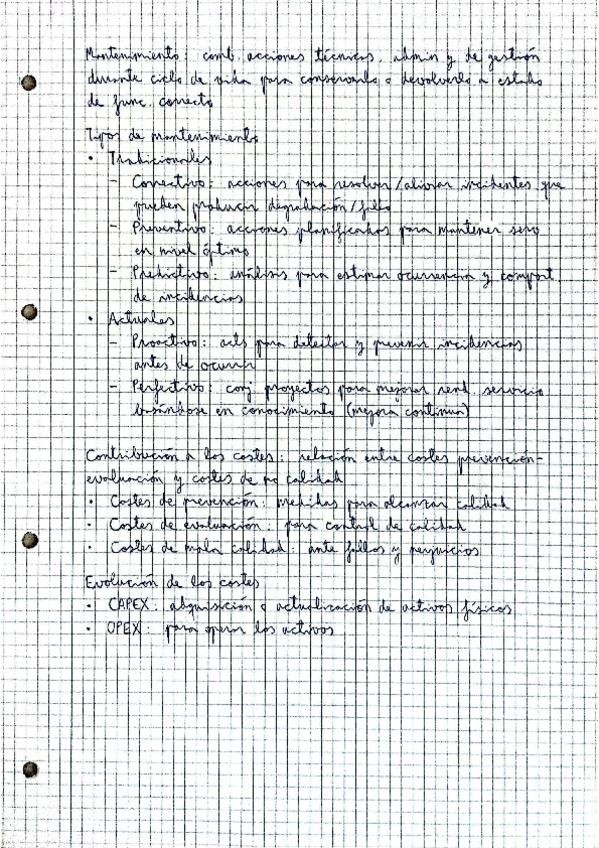 Mantenimiento: comb. acciones técnicas, admin y de gestión
durante ciclo de vida para conservarlo o devolverlo a estado
de func. correcto
Tipos de mantenimiento
• Tradicionales
- Correctivo: acciones para resolver/aliviar incidentes que
pueden producir degradación/fallo
- Preventivo: acciones planificadas para mantener serv
en nivel óptimo
- Predictivo: análisis para estimar ocurrencia y comport.
de incidencias
• Actuales
- Proactivo: acts para detectar y prevenir incidencias
antes de ocurrir
- Perfectivo: conj. proyectos para mejorar rend. servicio
basándose en conocimiento (mejora continua)
Contribución a los costes: relación entre costes prevención-
evaluación y costes de no calidad
• Costes de prevención: medidas para alcanzar calidad
• Costes de evaluación: para control de calidad
• Costes de mala calidad: ante fallos y perjuicios
Evolución de los costes
• CAPEX: adquisición o actualización de activos físicos
• OPEX: para operar los activos